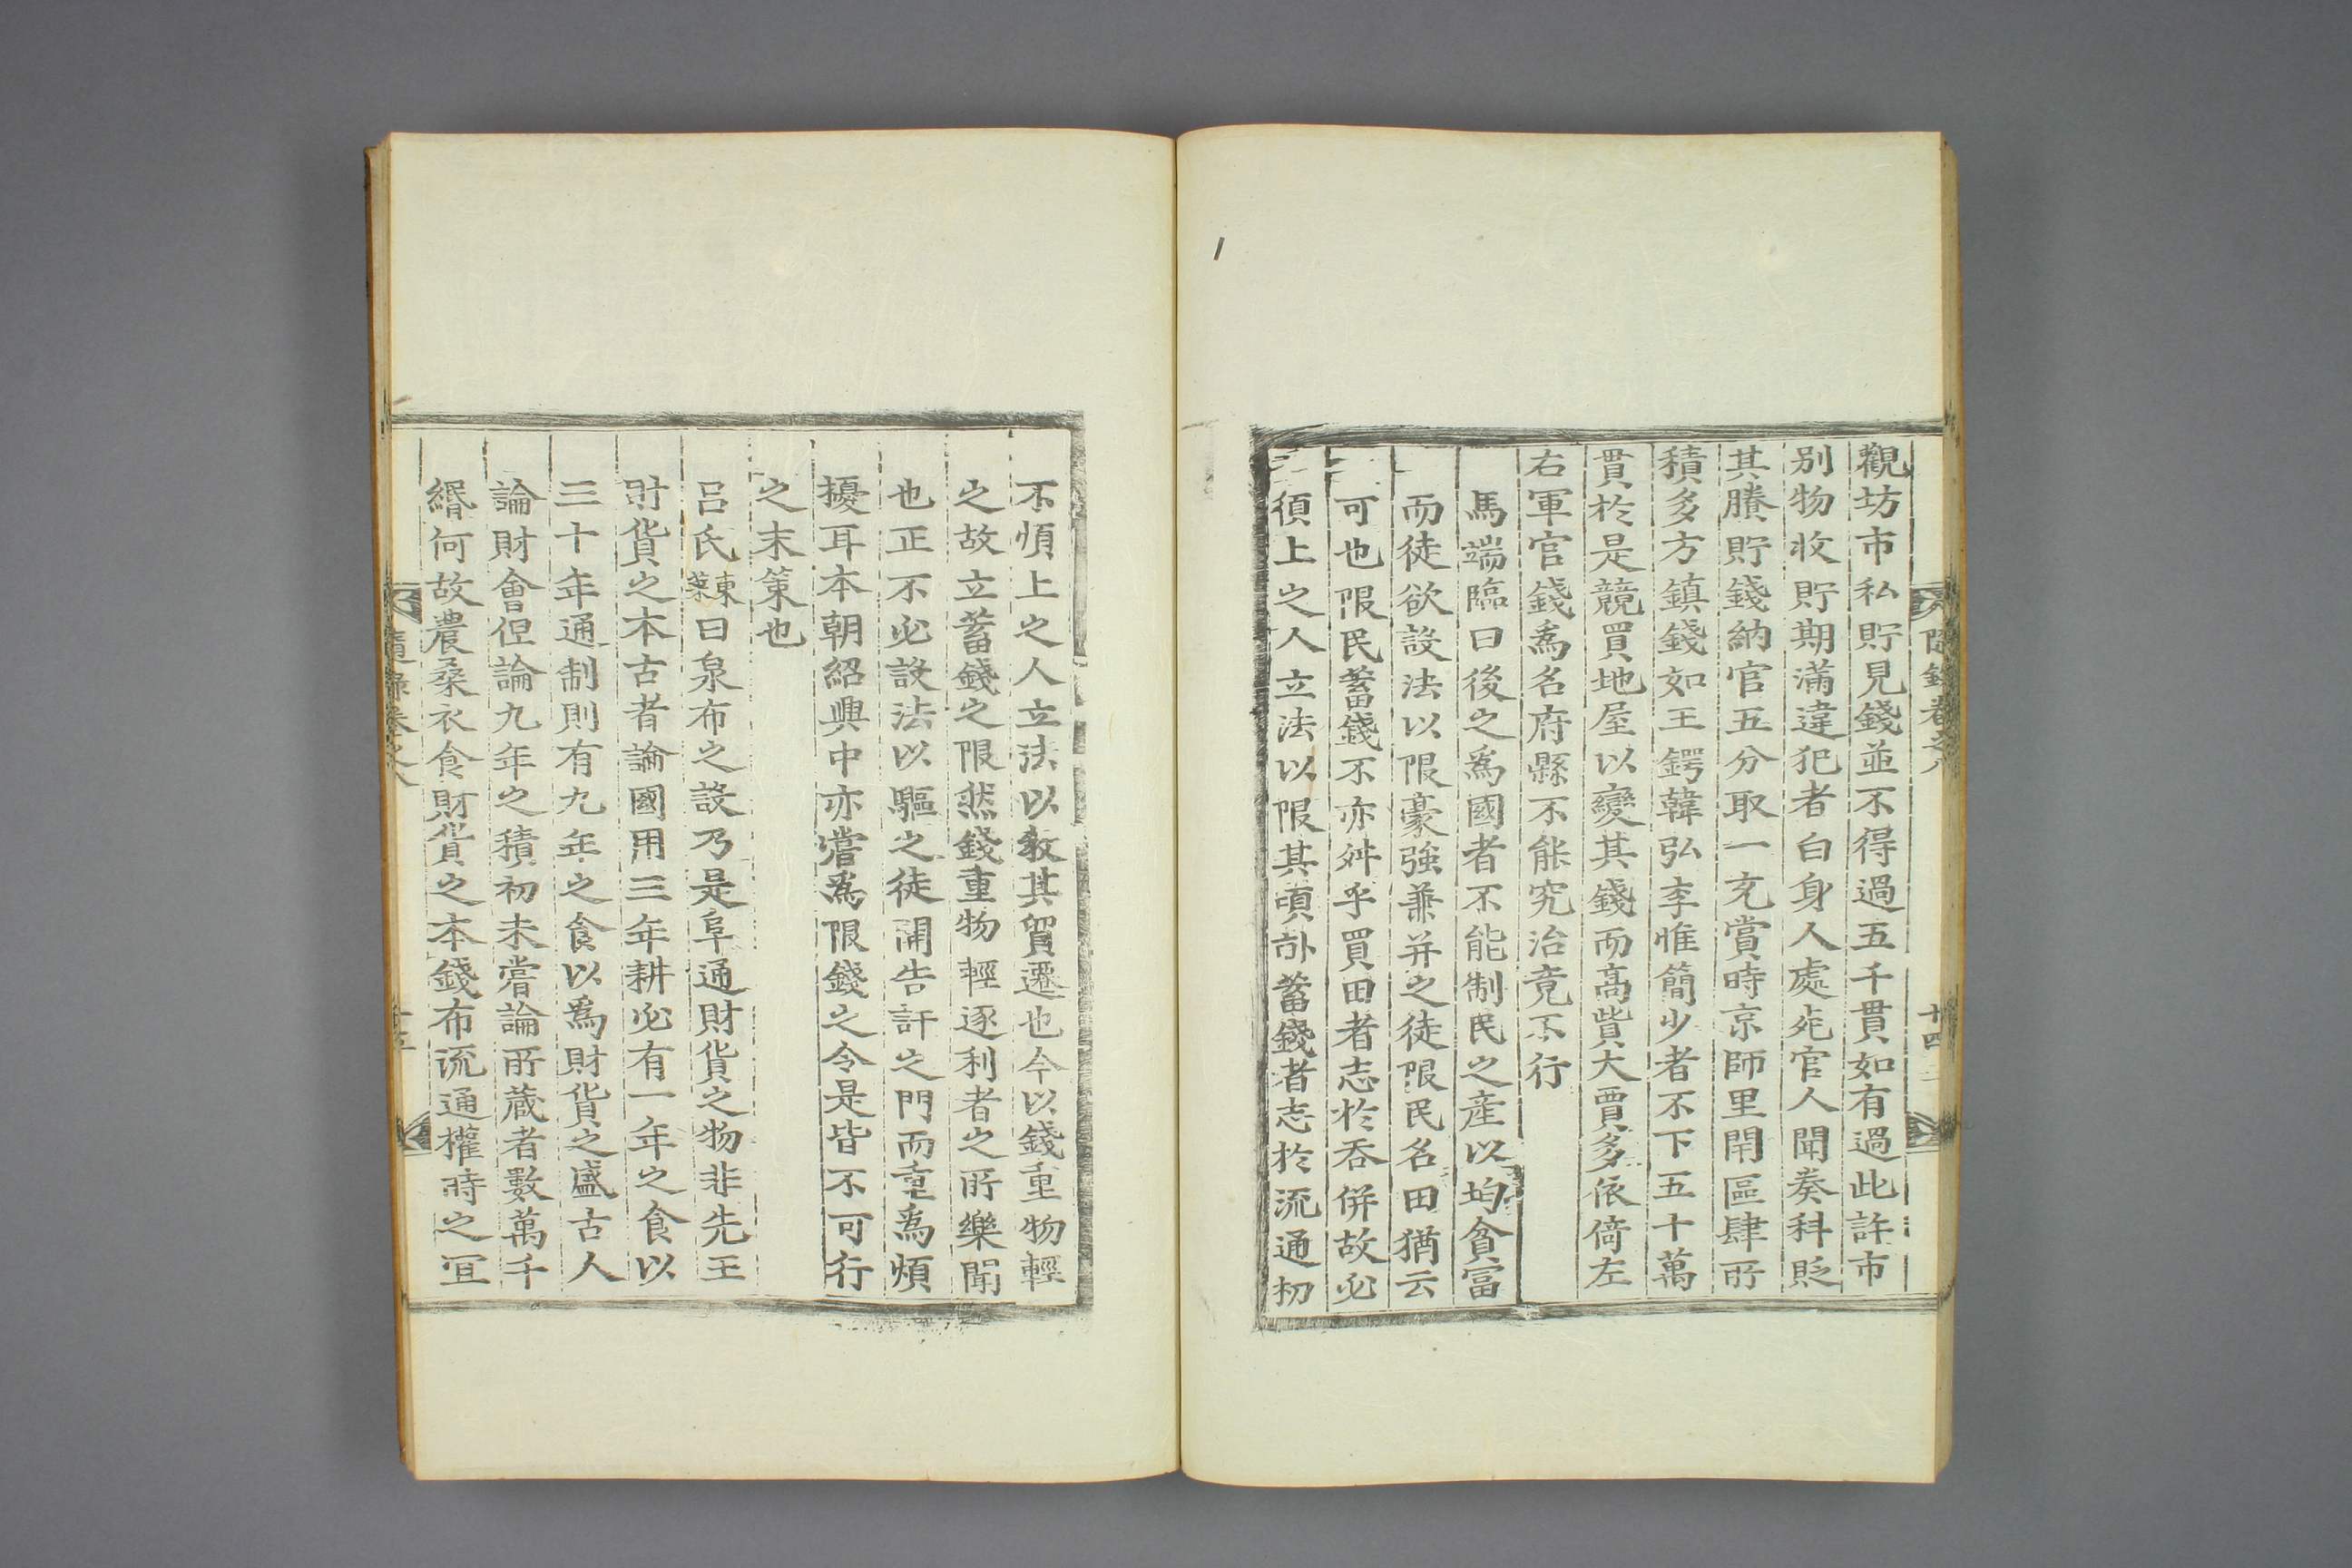 觀坊市私貯見錢並不得過五千貫如有過此許市
别物收貯期滿違犯者白身人處死官人聞奏科貶
其賸貯錢納官五分取一充賞時京師里閈區肆所
積多方鎮錢如王鍔韓弘李惟簡少者不下五十萬
貫於是競買地屋以變其錢而高貲大賈多依倚左
右軍官錢爲名府縣不能究治竟不行
馬端臨曰後之爲國者不能制民之産以均貧富
而徒欲設法以限豪強兼并之徒限民名田猶云
可也限民蓄錢不亦舛乎買田者志於吞併故必
須上之人立法以限其頃畝蓄錢者志於流通初
隨錄卷之八
十四
不煩上之人立法以教其貿遷也今以錢重物輕
之故立蓄錢之限然錢重物輕逐利者之所樂聞
也正不必設法以驅之徒開告訐之門而重爲煩
擾耳本朝紹興中亦嘗爲限錢之令是皆不可行
之末策也
呂氏東萊曰泉布之設乃是阜通財貨之物非先王
財貨之本古者論國用三年耕必有一年之食以
三十年通制則有九年之食以爲財貨之盛古人
論財會但論九年之積初未嘗論所蔵者數萬千
緡何故農桑衣食財貨之本錢布流通權時之宜
隨錄卷之八